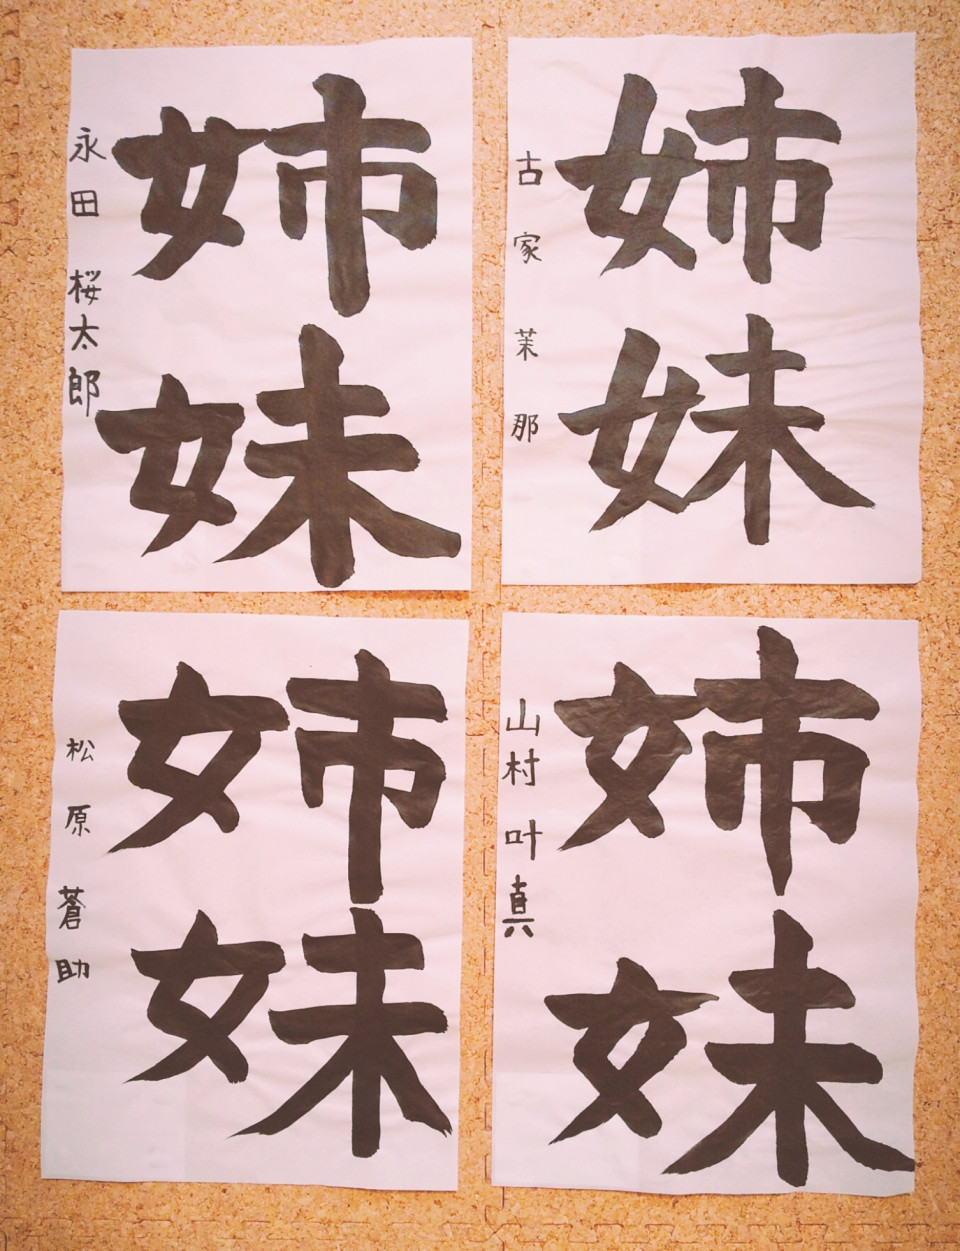 姉妹
永田 桜太郎
姉妹
古家 茉那
姉妹
松原 蒼助
姉妹
山村 叶真